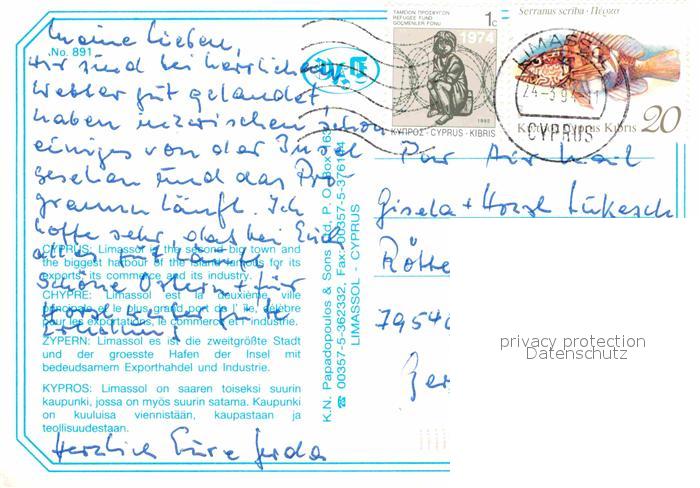 No. 891
Meine Lieben,
wir sind bei herrlichem
Wetter gut gelandet
haben inzwischen schon
einiges von der Insel
gesehen und das Pro-
gramm läuft. Ich
hoffe sehr, dass bei Euch
alles gut läuft.
Schöne Ostern + für
Horst weiter gute
Erholung
Herzlich Eure Gerda
CYPRUS: Limassol is the second big town and
the biggest harbour of the island famous for its
exports, its commerce and its industry.
CHYPRE: Limassol est la deuxième ville
principale et le plus grand port de l' île, célèbre
pour les exportations, le commerce et l' industrie.
ZYPERN: Limassol es ist die zweitgrößte Stadt
und der groesste Hafen der Insel mit
bedeudsamem Exporthandel und Industrie.
KYPROS: Limassol on saaren toiseksi suurin
kaupunki, jossa on myös suurin satama. Kaupunki
on kuuluisa viennistään, kaupastaan ja
teollisuudestaan.
K.N. Papadopoulos & Sons Ltd., P.O.Box 163
☎ 00357-5-362332, Fax: 00357-5-376104
LIMASSOL - CYPRUS
ΤΑΜΕΙΟΝ ΠΡΟΣΦΥΓΩΝ
REFUGEE FUND
GÖÇMENLER FONU
1c
1974
ΚΥΠΡΟΣ-CYPRUS-KIBRIS
Serranus scriba · Πέρκα
Cyprus Kıbrıs 20
LIMASSOL
24-3-94
CYPRUS
Per Air Mail
Gisela + Horst Lukasch
Rötte
79540
privacy protection
Datenschutz